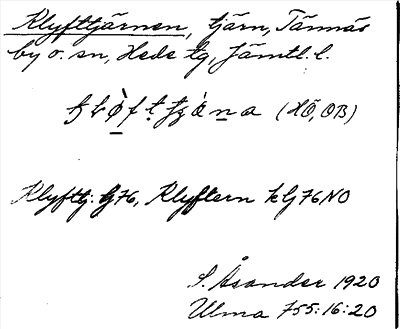 Klyfttjärnen, tjärn, Tännäs
by o. sn, Hede tg, Jämtl. l.
(HÖ, OB)
Klyfttj. Gj76, Klyftern k Gj76NO
S. Åsander 1920
Ulma 755:16:20